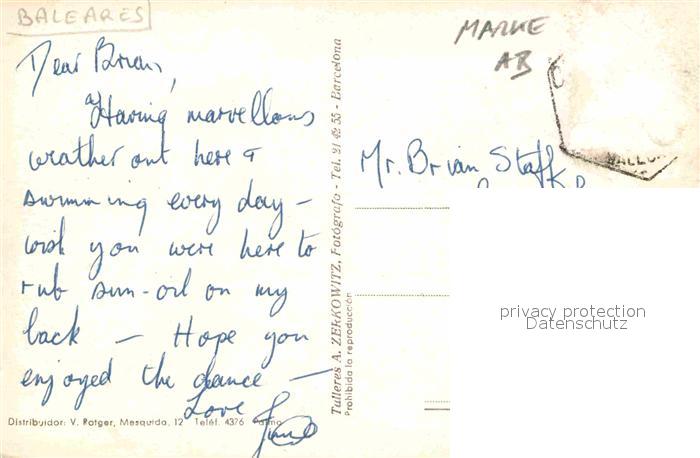 BALEARES
MARKE
AB
Dear Brian,
Having marvellous
weather out here &
swimming every day –
wish you were here to
rub sun-oil on my
back – Hope you
enjoyed the dance –
Love
Distribuidor: V. Rotger, Mesquida, 12 Teléf. 4376 Palma
Talleres A. ZERKOWITZ, Fotógrafo - Tel. 21 42 55 - Barcelona
Prohibida la reproducción
Mr. Brian
privacy protection
Datenschutz